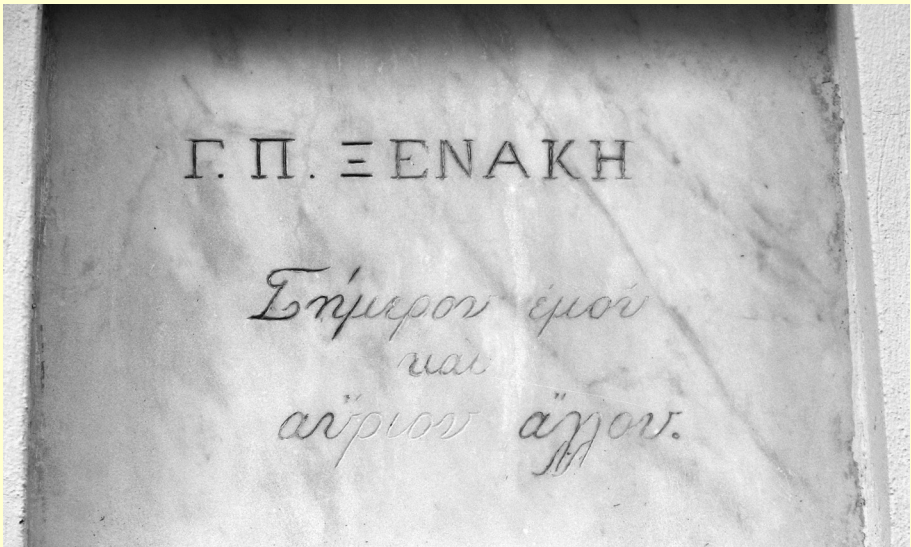 Γ. Π. ΞΕΝΑΚΗ
Σήμερον ἐμοῦ
καὶ
αὔριον ἄλλου.